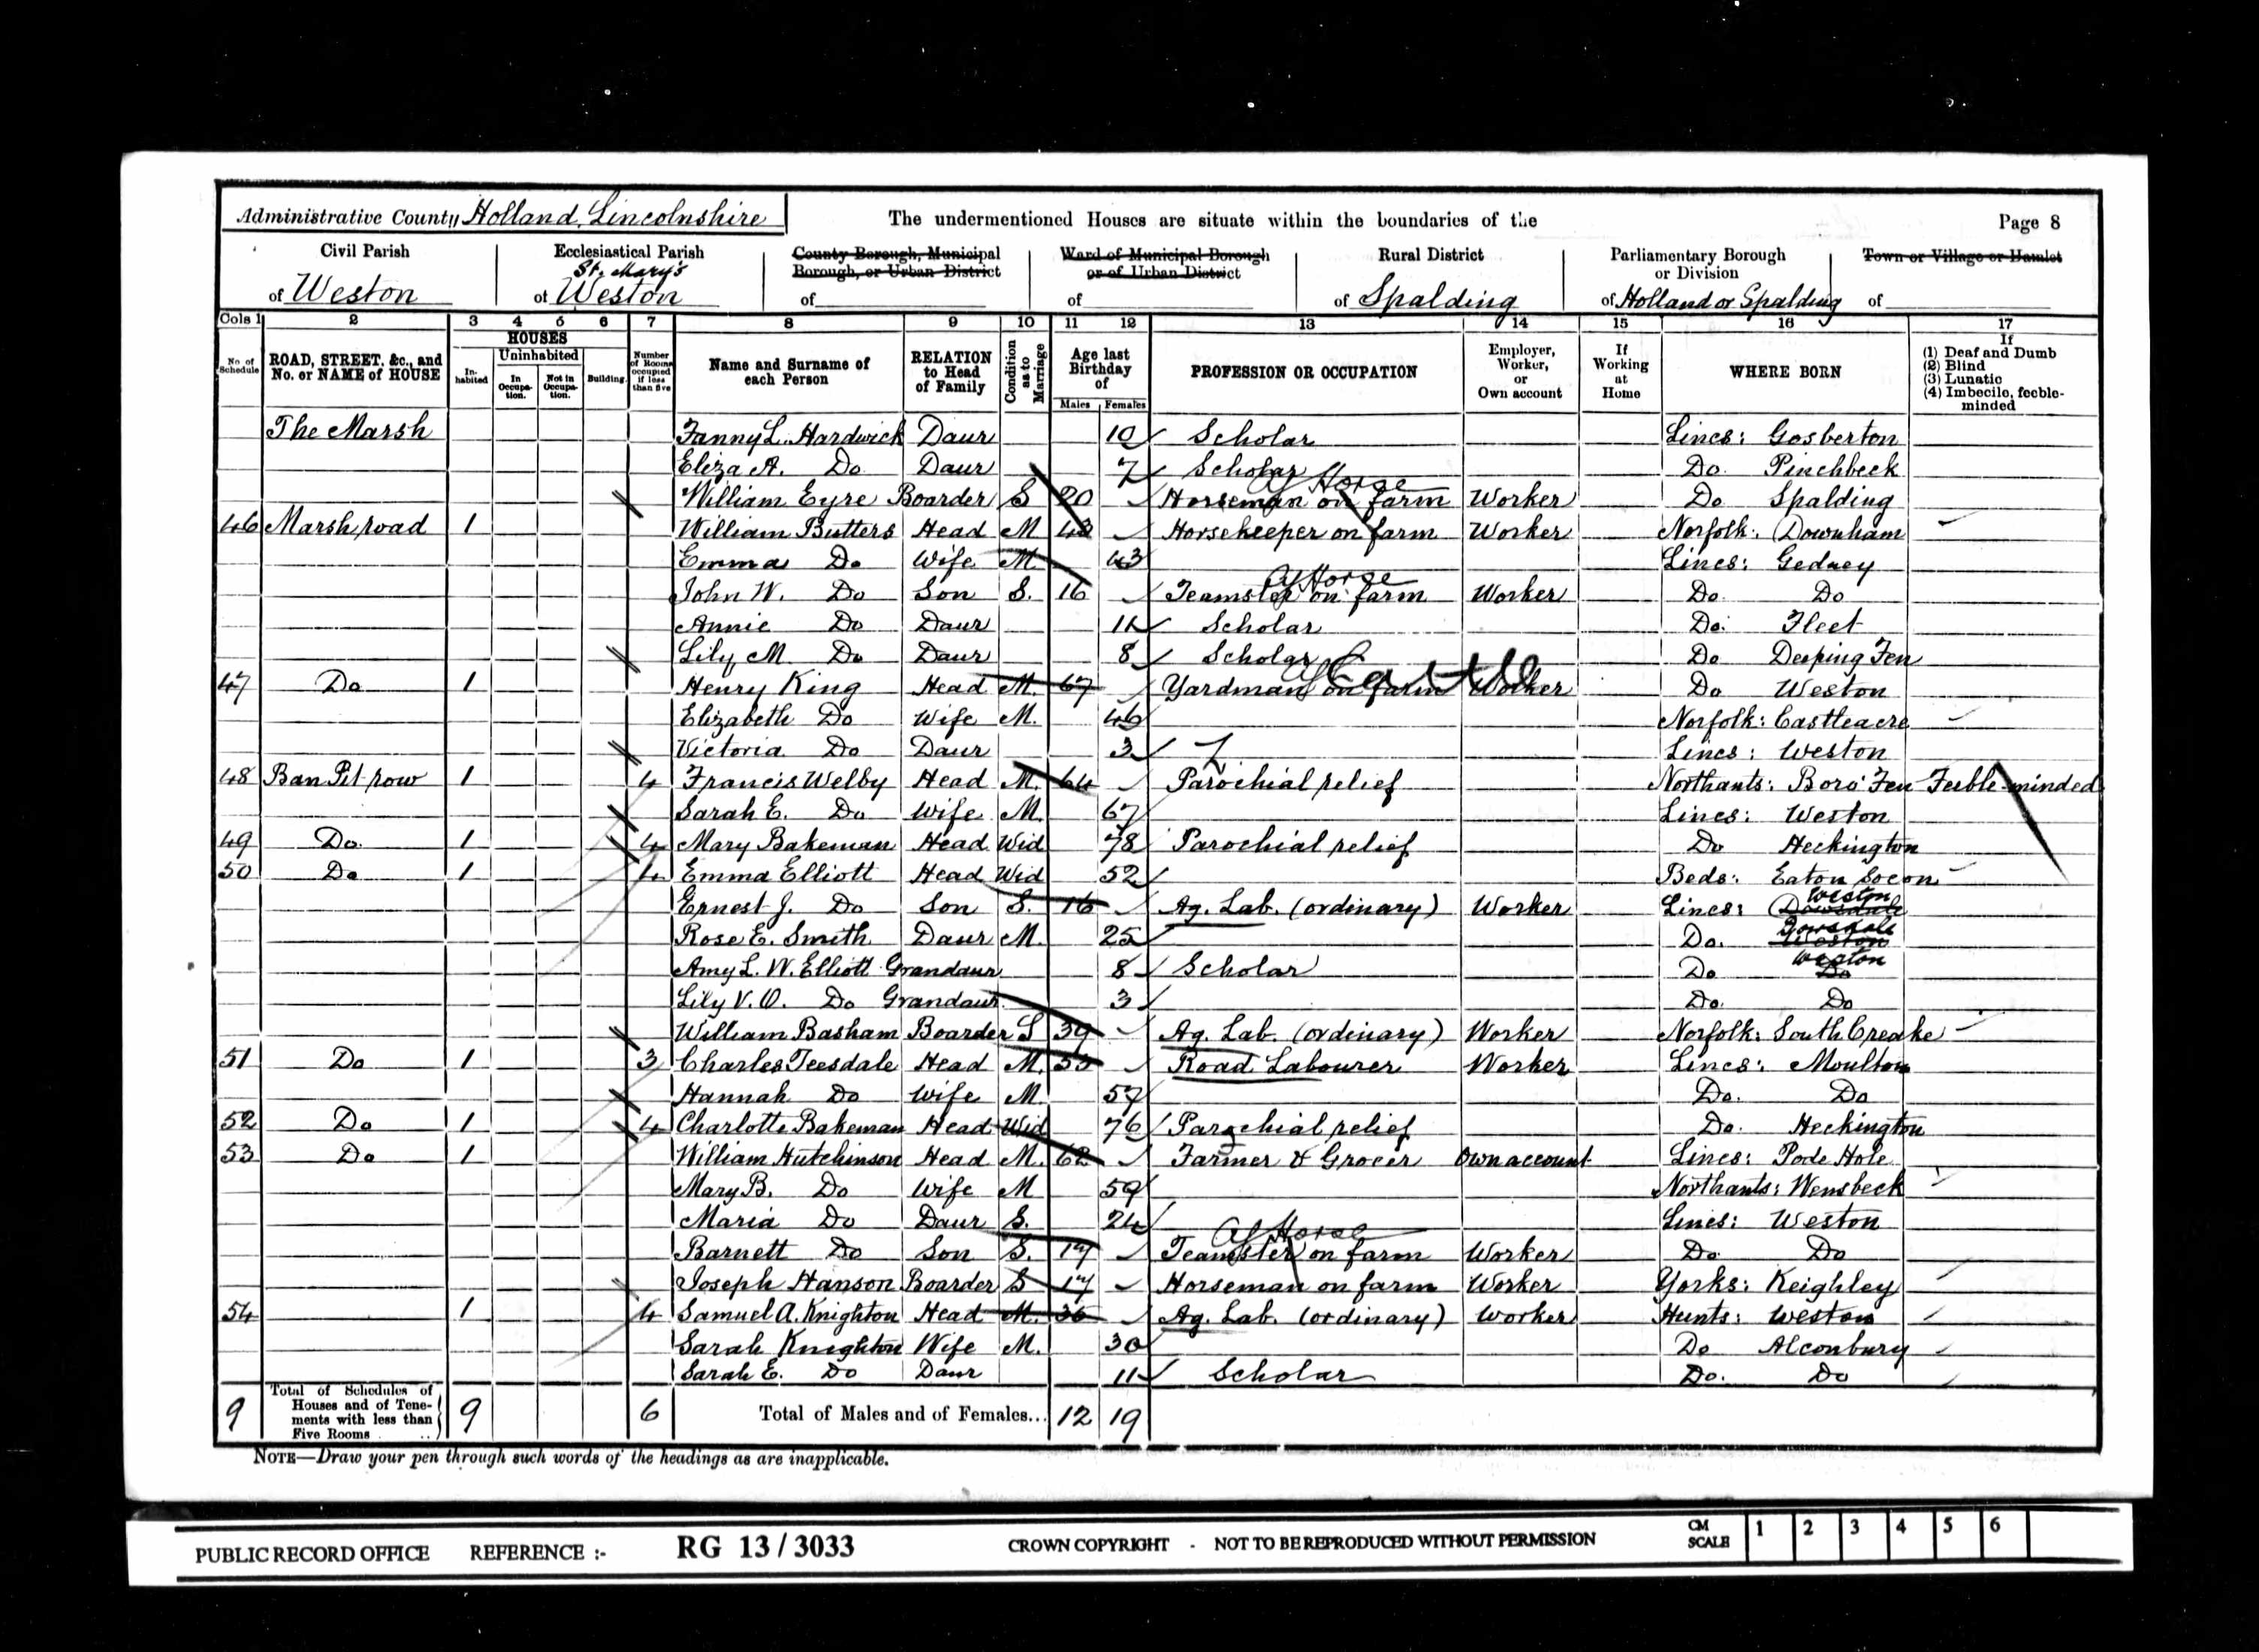 Administrative County Holland, Lincolnshire The undermentioned Houses are situate within the boundaries of the Page 8
Civil Parish of Weston
Ecclesiastical Parish of St. Mary's Weston
County Borough, Municipal Borough, or Urban District of
Ward of Municipal Borough or of Urban District of
Rural District of Spalding
Parliamentary Borough or Division of Holland or Spalding
Town or Village or Hamlet of
Cols 1 2 3 4 5 6 7 8 9 10 11 12 13 14 15 16 17
No of Schedule
ROAD, STREET, &c., and No. or NAME of HOUSE
HOUSES
Inhabited
Uninhabited
In Occupation.
Not in Occupation.
Building.
Number of Rooms occupied if less than five
Name and Surname of each Person
RELATION to Head of Family
Condition as to Marriage
Age last Birthday of
Males Females
PROFESSION OR OCCUPATION
Employer, Worker, or Own account
If Working at Home
WHERE BORN
If
(1) Deaf and Dumb
(2) Blind
(3) Lunatic
(4) Imbecile, feeble-minded
The Marsh Fanny L. Hardwick Daur 10 Scholar Lincs: Gosberton
Eliza A. Do Daur 7 Scholar Do Pinchbeck
Horse
William Eyre Boarder S 20 Horseman on farm Worker Do Spalding
46 Marsh road 1 William Butters Head M 43 Horsekeeper on farm Worker Norfolk: Downham
Emma Do Wife M 43 Lincs: Gedney
Horse
John W. Do Son S. 16 Teamster on farm Worker Do Do
Annie Do Daur 11 Scholar Do: Fleet
Lily M Do Daur 8 Scholar Do Deeping Fen
Cattle
47 Do 1 Henry King Head M. 67 Yardman on farm Worker Do Weston
Elizabeth Do Wife M. 46 Norfolk: Castleacre
Victoria Do Daur 3 Lincs: Weston
48 Ban Pit row 1 4 Francis Welby Head M. 64 Parochial relief Northants: Boro' Fen Feeble-minded
Sarah E. Do Wife M. 67 Lincs: Weston
49 Do. 1 4 Mary Bakeman Head Wid 78 Parochial relief Do Heckington
50 Do 1 4 Emma Elliott Head Wid 52 Beds: Eaton Socon
Weston
Ernest J. Do Son S. 16 Ag. Lab. (ordinary) Worker Lincs: Dowsdale
Dowsdale
Rose E. Smith Daur M. 25 Do. Weston
Weston
Amy L. W. Elliott Grandaur 8 Scholar Do Do
Lily V. O. Do Grandaur 3 Do. Do
William Basham Boarder S 39 Ag. Lab. (ordinary) Worker Norfolk: South Creake
51 Do 1 3 Charles Teesdale Head M. 53 Road Labourer Worker Lincs: Moulton
Hannah Do Wife M. 57 Do. Do
52 Do 1 4 Charlotte Bakeman Head Wid 76 Parochial relief Do. Heckington
53 Do 1 William Hutchinson Head M. 62 Farmer & Grocer Own account Lincs: Pode Hole
Mary B. Do Wife M 59 Northants: Wensbeck
Maria Do Daur S. 24 Lincs: Weston
Horse
Barnett Do Son S. 17 Teamster on farm Worker Do Do
Joseph Hanson Boarder S 17 Horseman on farm Worker Yorks: Keighley
54 1 4 Samuel A. Knighton Head M. 36 Ag. Lab. (ordinary) Worker Hunts: Weston
Sarah Knighton Wife M. 30 Do Alconbury
Sarah E. Do Daur 11 Scholar Do. Do
9 Total of Schedules of Houses and of Tenements with less than Five Rooms .. 9 6 Total of Males and of Females... 12 19
NOTE—Draw your pen through such words of the headings as are inapplicable.
PUBLIC RECORD OFFICE REFERENCE :- RG 13 / 3033 CROWN COPYRIGHT - NOT TO BE REPRODUCED WITHOUT PERMISSION CM SCALE 1 2 3 4 5 6